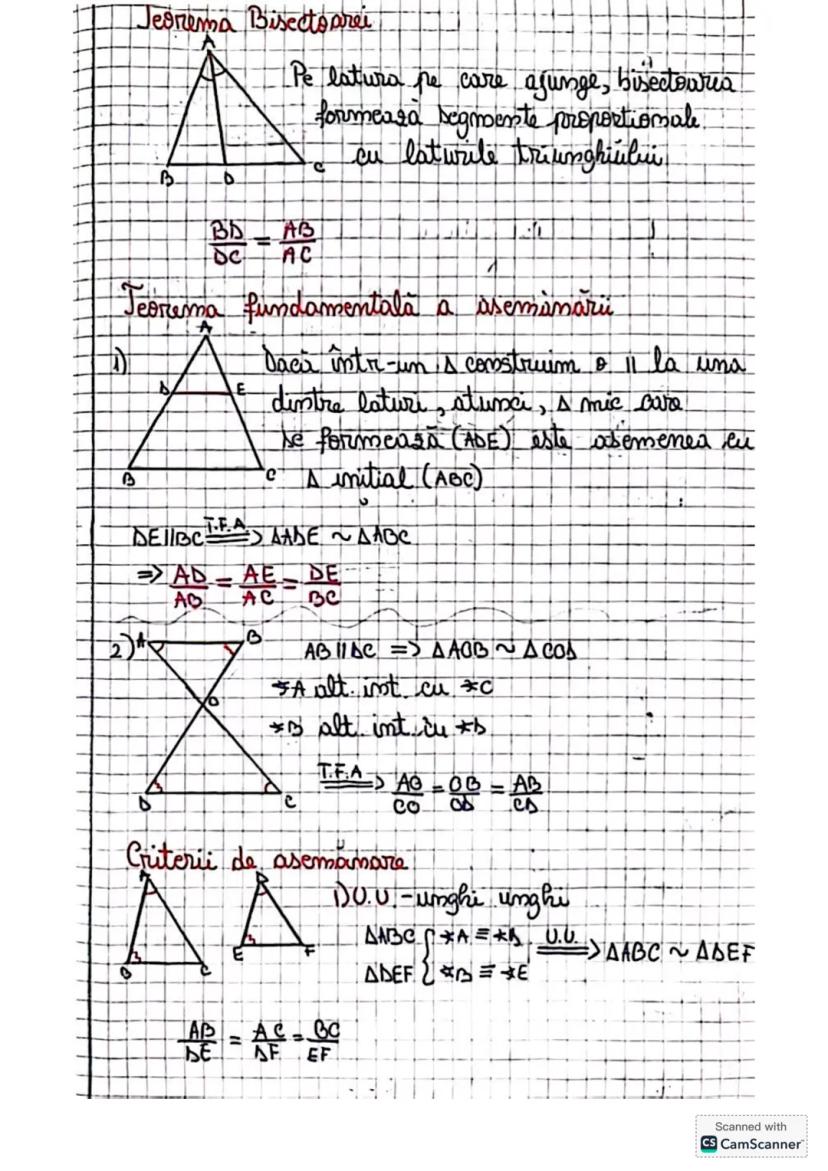 Teorema Bisectoarei
A
Pe latura pe care ajunge, bisectoarea
formează segmente proporționale
cu laturile triunghiului
B D C
BD/DC = AB/AC
Teorema fundamentală a asemănării
A
1) Dacă într-un Δ construim o || la una
D E dintre laturi, atunci, Δ mic care
se formează (ADE) este asemenea cu
B C Δ inițial (ABC)
DE||BC T.F.A. ⟹ ΔADE ~ ΔABC
=> AD/AB = AE/AC = DE/BC
2) A B AB||DC => ΔAOB ~ ΔCOD
∢A alt. int. cu ∢C
O
∢B alt. int. cu ∢D
T.F.A ⟹ AO/CO = OB/OD = AB/CD
D C
Criterii de asemănare
A D
1) U.U. - unghi unghi
ΔABC { ∢A ≡ ∢D U.U. ⟹ ΔABC ~ ΔDEF
ΔDEF { ∢B ≡ ∢E
B C E F
AB/DE = AC/DF = BC/EF
Scanned with
CS CamScanner